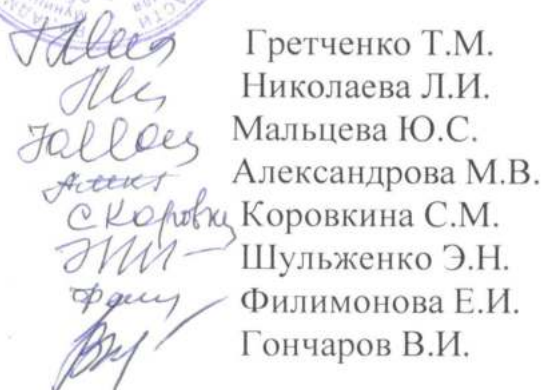 Гретченко Т.М.
Николаева Л.И.
Мальцева Ю.С.
Александрова М.В.
Коровкина С.М.
Шульженко Э.Н.
Филимонова Е.И.
Гончаров В.И.